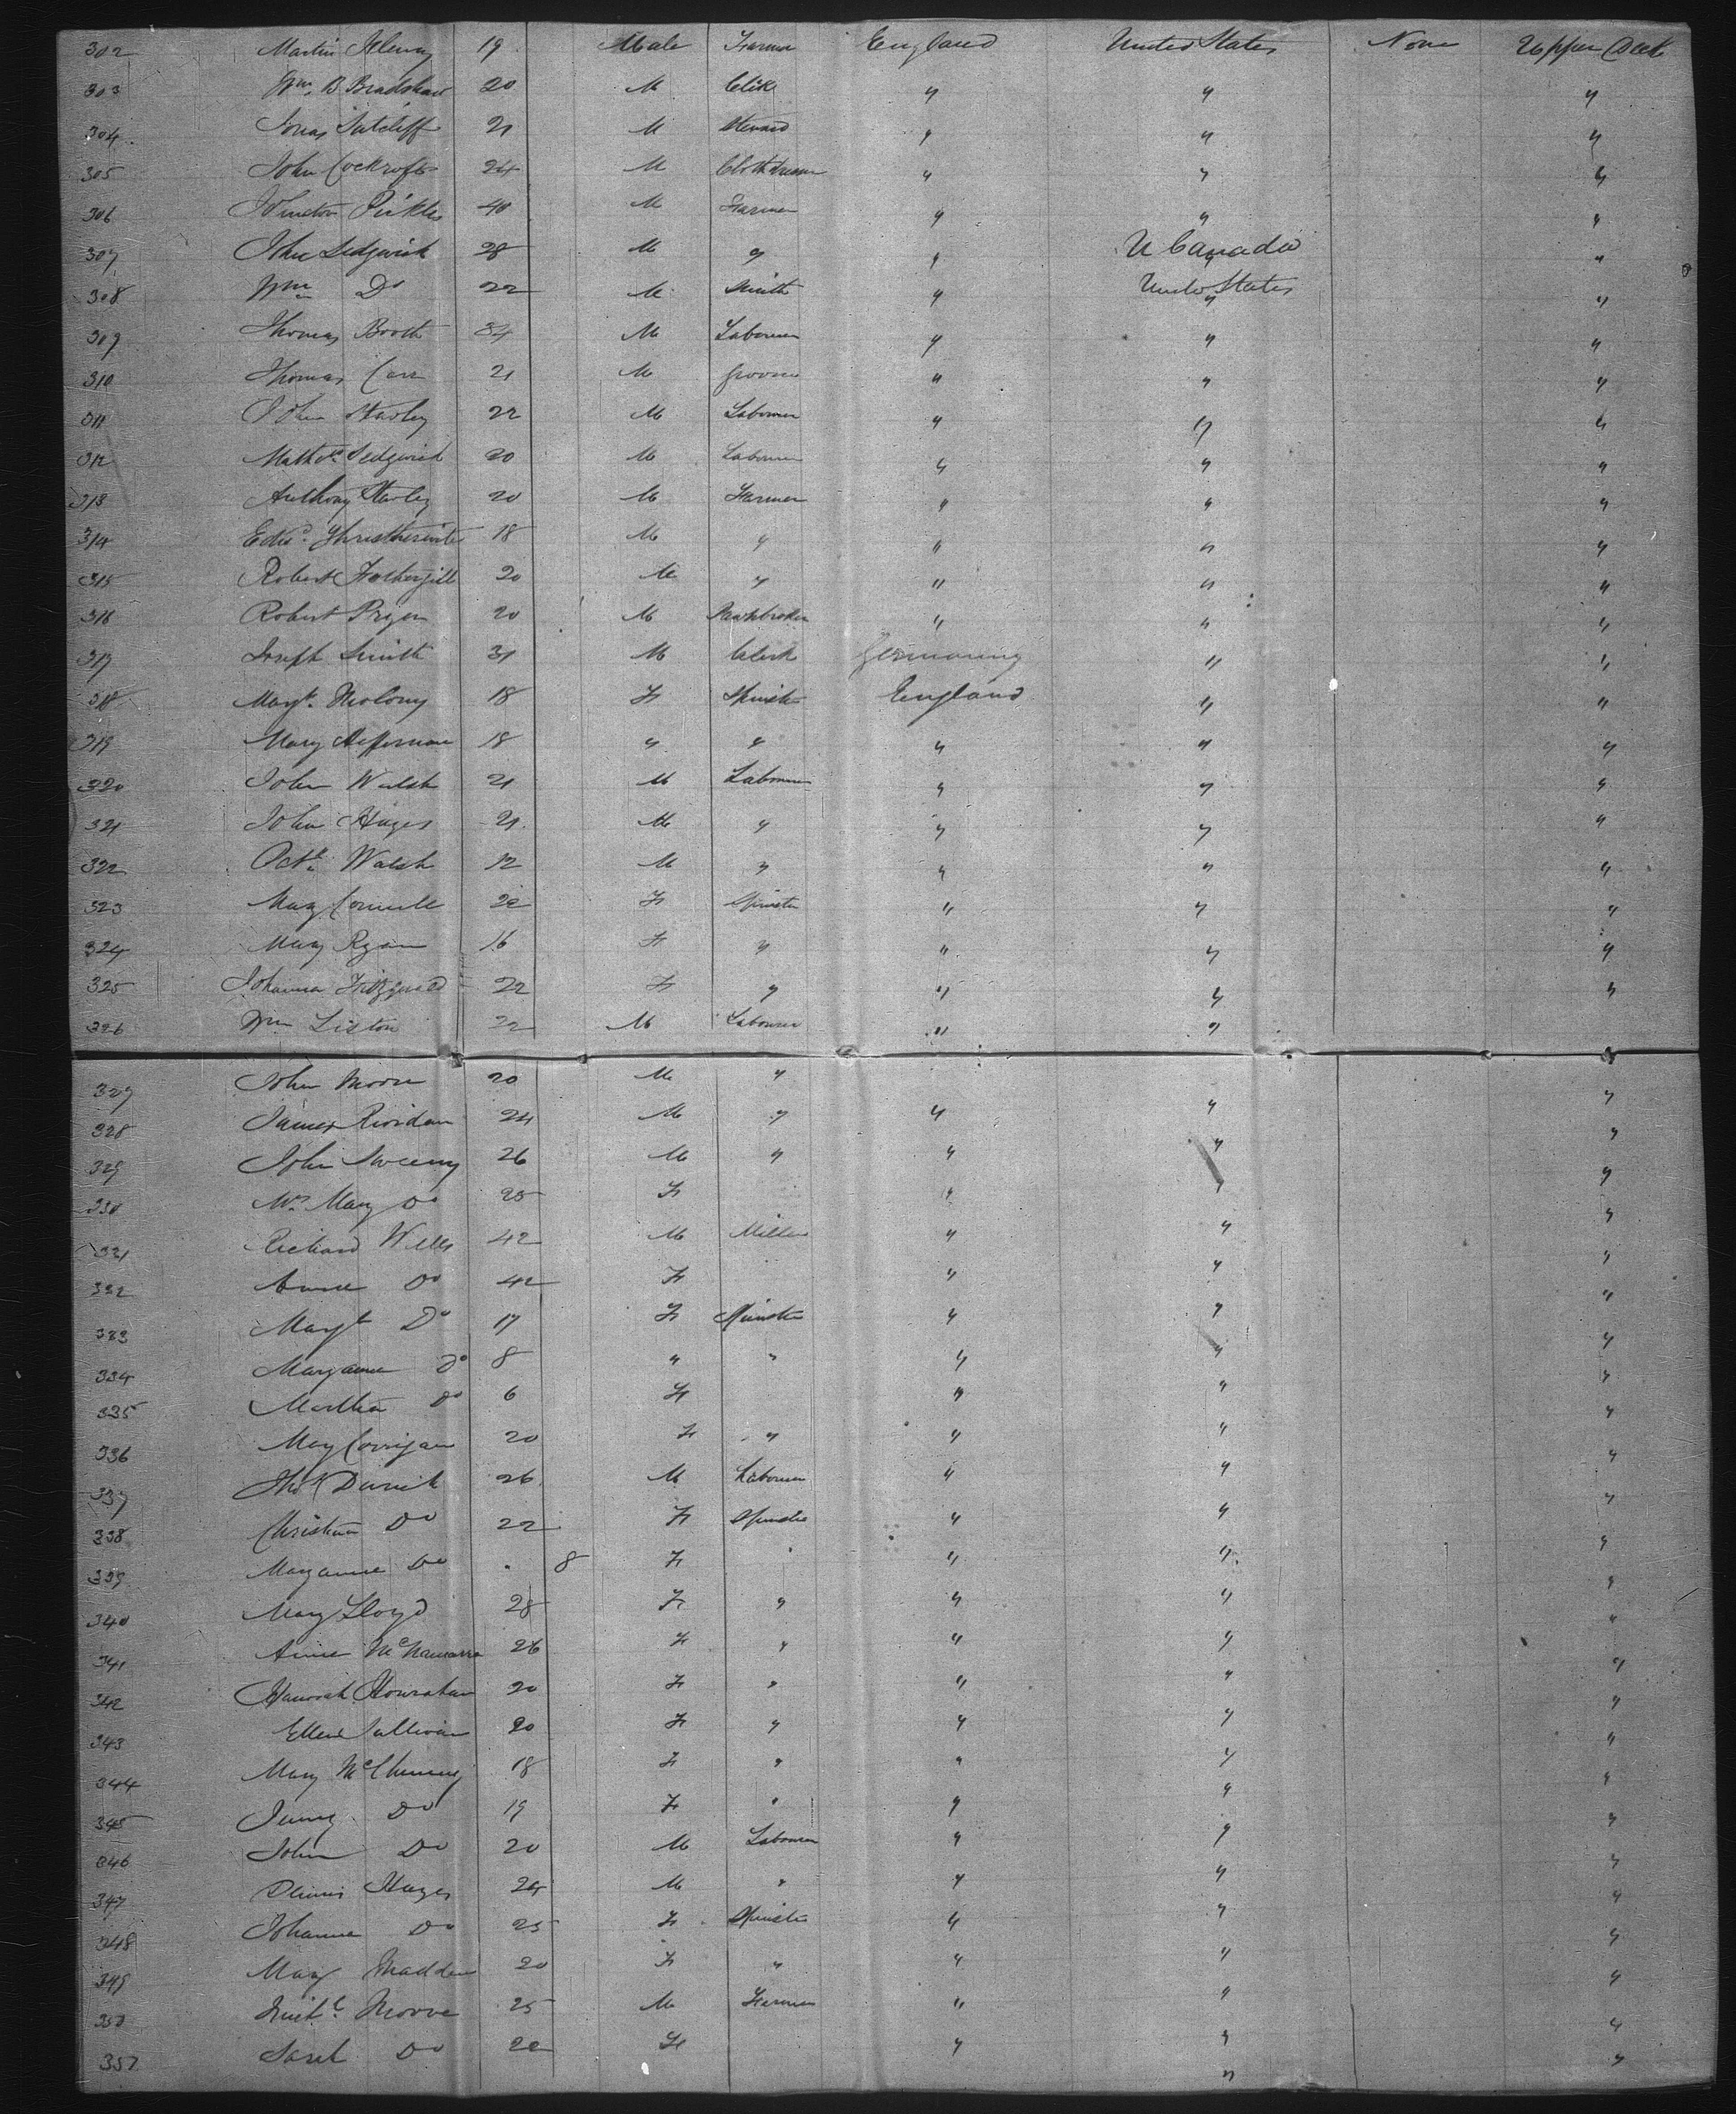 302 Martin 19 Male Farmer England United States None Upper Deck
303 Wm. B Bradshaw 20 M Clerk " " "
304 Jonas Sutcliff 21 M Steward " " "
305 John Cockroft 24 M " " "
306 Pickles 40 M Farmer " " "
307 John Sedgwick 28 M " " U Canada "
308 Wm Do 22 M Smith " United States "
309 Thomas Booth 34 M Labourer " " "
310 Thomas Carr 21 M Groom " " "
311 John 22 M Labourer " " "
312 Mathw. Sedgwick 20 M Labourer " " "
313 Anthony 20 M Farmer " " "
314 Edwd. 18 M " " " "
315 Robert Fothergill 20 M " " " "
316 Robert Pryor 20 M Pawnbroker " " "
317 Joseph Smith 31 M Clerk Germany " "
318 Margt. Molony 18 F Spinster England " "
319 Mary Heffernan 18 " " " " "
320 John Walsh 21 M Labourer " " "
321 John Hayes 21 M " " " "
322 Walsh 12 M " " " "
323 Mary Connell 22 F Spinster " " "
324 Mary Ryan 16 F " " " "
325 Johanna Fitzgerald 22 F " " " "
326 Wm Liston 22 M Labourer " "
327 John Moore 20 M " "
328 James Riordan 24 M " " " "
329 John Sweeny 26 M " " " "
330 Mrs Mary Do 25 F " " "
331 Richard Wells 42 M Miller " " "
332 Anne Do 42 F " " "
333 Margt Do 17 F Spinster " " "
334 Maryanne Do 8 " " " " "
335 Martha Do 6 F " " "
336 Mary Corrigan 20 F " " " "
337 Thos 26 M Labourer " " "
338 Christina Do 22 F Spinster " " "
339 Maryanne Do . 8 F " " " "
340 Mary Lloyd 28 F " " " "
341 Anne McNamarra 26 F " " " "
342 Hannorah Hourahan 20 F " " " "
343 Ellen Sullivan 20 F " " " "
344 Mary 18 F " " " "
345 Do 19 F " " " "
346 John Do 20 M Labourer " " "
347 Dennis Hayes 24 M " " " "
348 Johanna Do 25 F Spinster " " "
349 Mary Madden 20 F " " " "
350 Michl. Moore 25 M Farmer " " "
351 Sarah Do 22 F " " "
"